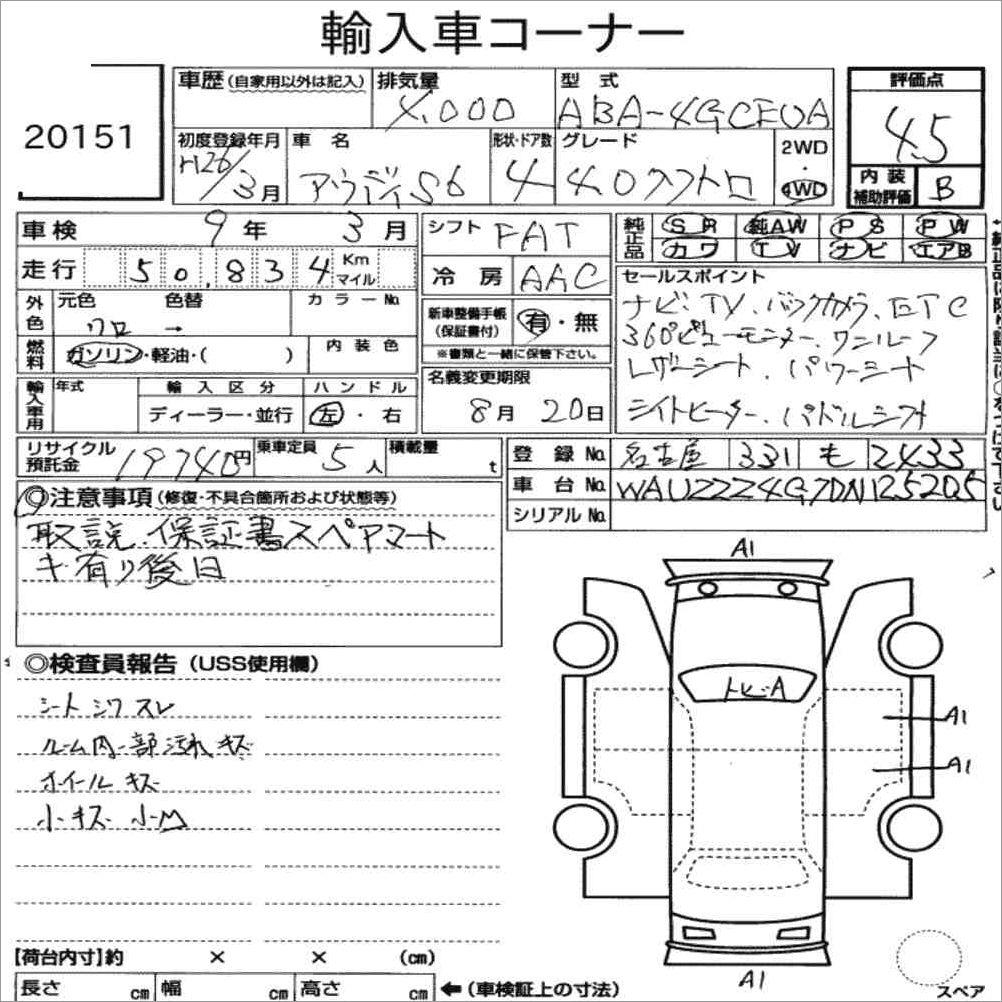 輸入車コーナー
20151
車歴(自家用以外は記入) 排気量 4,000 型式 ABA-4GCEUA 評価点 4.5
初度登録年月 H26/3月 車名 アウディS6 形状・ドア数 4 グレード 4.0クワトロ 2WD 4WD 内装補助評価 B
車検 9年 3月 シフト FAT 純正品 SR 純AW PS PW
カワ TV ナビ エアB
走行 50,834 Km マイル 冷房 AAC セールスポイント
外色 元色 クロ 色替 → カラーNo. 新車整備手帳(保証書付) 有・無 ナビ.TV.バックカメラ.ETC
※書類と一緒に保管下さい。 360°ビューモニター.ワンルーフ
燃料 ガソリン・軽油・( ) 内装色 名義変更期限 レザーシート.パワーシート
輸入車用 年式 輸入区分 ディーラー・並行 ハンドル 左・右 8月 20日 シートヒーター.パドルシフト
リサイクル預託金 19740円 乗車定員 5人 積載量 t 登録No. 名古屋 331 も 2433
車台No. WAUZZZ4G7DN125205
シリアルNo.
◎注意事項(修復・不具合箇所および状態等)
取説.保証書スペアマート
キ有り後日
◎検査員報告(USS使用欄)
シートシワスレ
ルーム内一部汚れキズ
ホイールキズ
小キズ小M
A1
トビ-A
A1
A1
A1
スペア
【荷台内寸】約 × × (cm)
長さ cm 幅 cm 高さ cm ←(車検証上の寸法)